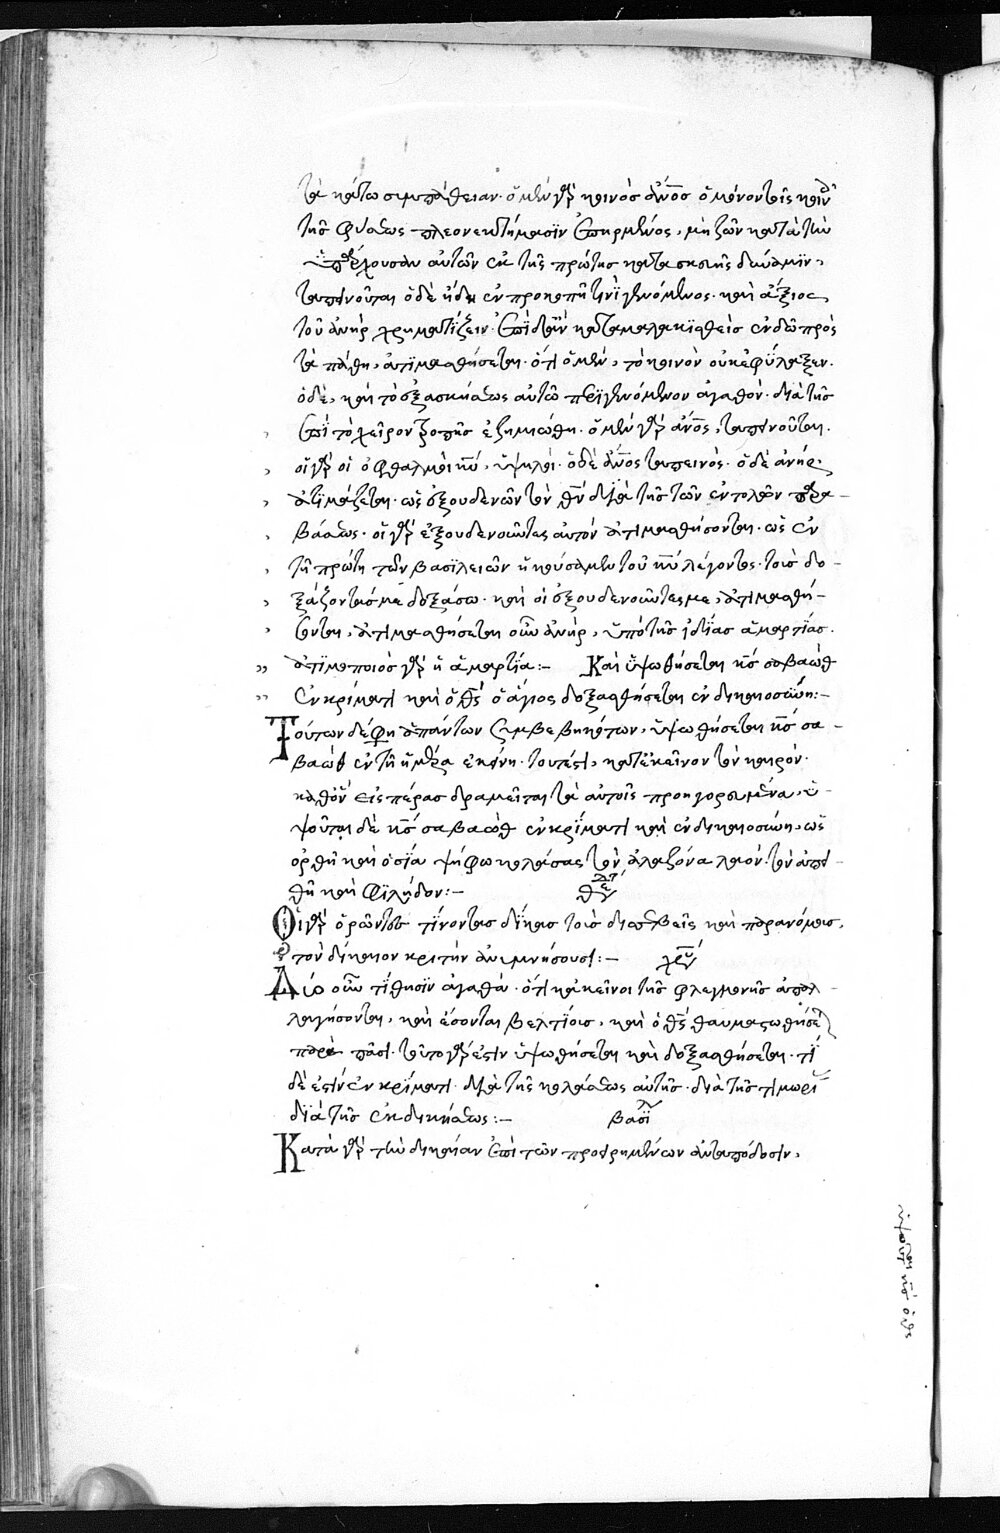 τὰ κάτω συμπάθειαν· ὁ μὲν γὰρ κοινὸς ἄνο̅ς ὁ μόνον τοῖς κοιν
τῆς φύσεως πλεονεκτήμασϊν ἐπηρμένος, μὴ ζῶν κατὰ τὴν
ὑπάρχουσαν αὐτῶν ἐκ τῆς πρώτης κατασκευῆς δύναμϊν,
ταπεινοῦται ὁ δὲ ἤδη ἐν προκοπῆ τινὶ γενόμενος· καὶ ἄξιος
τοῦ ἀνὴρ χρηματίζειν· ἐπϊδὰν καταμαλακϊσθεὶς ἐνδῶ πρὸς
τὰ πάθη, ἀτϊμασθήσεται· ὅτι ὁ μὲν, τὸ κοινὸν οὐκ ἐφύλαξεν·
ὁ δὲ, καὶ τὸ ἐξ ἀσκήσεως αὐτῶ περϊγενόμενον ἀγαθὸν· διὰ τῆς
ἐπὶ τὸ χεῖρον ῥοπῆς ἐζημιώθη· ὁ μὲν γὰρ ἄνο̅ς, ταπεινοῦται·
οἱ γὰρ οἱ ὀφθαλμοὶ κ̅υ, ὑψηλοὶ· ὁ δὲ ἄνο̅ς ταπεινὸς· ὁ δὲ ἀνήρ,
ἀτϊμάζεται· ὡς ἐξουδενῶν τὸν θ̅ν διὰ τῆς τῶν ἐντολῶν παρα-
βάσεως· οἱ γὰρ ἐξουδενοῦντες αὐτὸν ἀτιμασθήσονται· ὡς ἐν
τῇ πρώτη τῶν βασϊλειῶν ἠκούσαμεν τοῦ κ̅υ λέγοντος· τοὺς δο-
ξάζοντας με δοξάσω· καὶ οἱ ἐξουδενοῦντες με, ἀτιμασθή-
σονται, ἀτιμασθήσεται οὖν ἀνὴρ, ὑπὸ τῆς ἰδίας ἁμαρτίας·
ἀτϊμοποιὸς γὰρ ἡ ἁμαρτϊα:— Καὶ ὑψωθήσεται κ̅ς σαβαὼθ
ἐν κρίματι καὶ ὁ θ̅ς ὁ ἅγιος δοξασθήσεται ἐν δικαιοσύνη:—
Τούτων δέ φη ἁπάντων συμβεβηκότων, ὑψωθήσεται κ̅ς σα-
βαὼθ ἐν τῆ ἡμέρα ἐκείνη· τουτέστι, κατ' ἐκεῖνον τὸν καιρὸν·
καθ' ὃν εἰς πέρας δραμεῖται τὰ αὐτοῖς προηγορευμένα, ὑ-
ψοῦται δὲ κ̅ς σαβαὼθ ἐν κρίματι καὶ ἐν δικαιοσύνη, ὡς
ὀρθῆ καὶ ὁσία ψήφω κολάσας τὸν ἀλαζόνα λαὸν· τὸν ἀπει-
θῆ καὶ φϊλήδον:— θε
Οἱ γὰρ ὁρῶντες τίνοντας δίκας τοὺς δυσσεβεῖς καὶ παρανόμους,
τὸν δίκαιον κριτὴν ἀνυμνήσουσι:— χρυ
Διὸ οὖν τϊθησϊν ἀγαθὰ· ὅτι κἀκεῖνοι τῆς φλεγμονῆς ἀπαλ-
λαγήσονται, καὶ ἔσονται βελτίους, καὶ ὁ θ̅ς θαυμαστωθήσε
παρὰ πᾶσι· τοῦτο γάρ ἐστιν ὑψωθήσεται καὶ δοξασθήσεται· τί
δὲ ἐστὶν ἐν κρίματι· διὰ τῆς κολάσεως αὐτῆς· διὰ τῆς τιμωρι
διὰ τῆς ἐκδικήσεως:— βασι
Κατὰ γὰρ τὴν δικαίαν ἐπὶ τῶν προειρημένων ἀνταπόδοσιν,